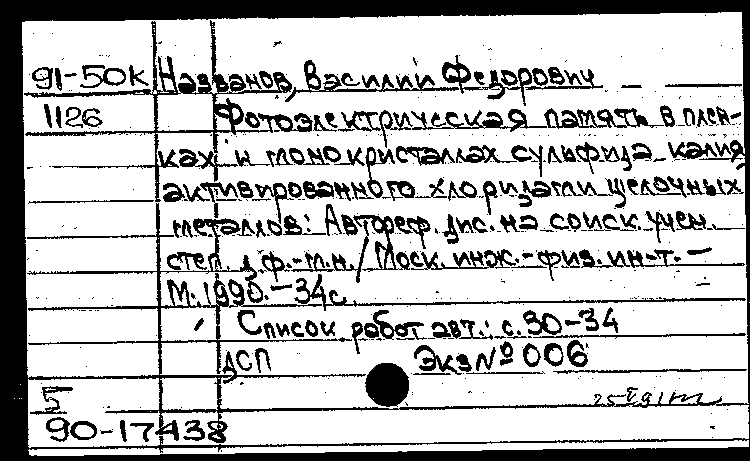 91-50к Названов, Василий Федорович
1126 Фотоэлектрическая память в плен-
ках и монокристаллах сульфида калия,
активированного хлоридами щелочных
металлов: Автореф. дис. на соиск. учен.
степ. д.ф.-м.н. / Моск. инж.-физ. ин-т. —
М., 1990. — 34с.
Список работ авт.: с. 30-34
ДСП Экз № 006
5
90-17438